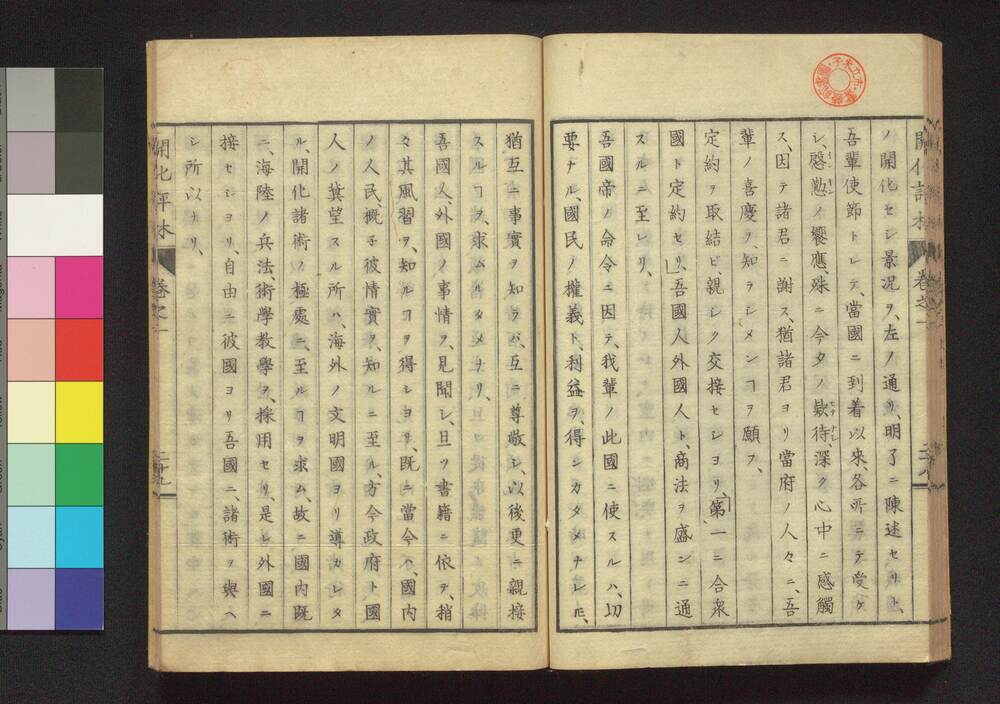 ノ開化セシ景況ヲ、左ノ通リ、明了ニ陳述セリト、
吾輩使節トシテ、當國ニ到着以來、各所ニテ受ケ
シ、慇懃ノ饗應、殊ニ今夕ノ欵待、深ク心中ニ感觸
ス、因テ諸君ニ謝ス、猶諸君ヨリ當府ノ人々ニ、吾
輩ノ喜慶ヲ、知ラシメンヿヲ願フ、
定約ヲ取結ビ、親シク交接セシヨリ、第一ニ合衆
國ト定約セリ、吾國人外國人ト、商法ヲ盛ンニ通
スルニ至レリ、
吾國帝ノ命令ニ因テ、我輩ノ此國ニ使スルハ、切
要ナル、國民ノ權義ト、利益ヲ、得ンカタメナレ𪜈、
猶互ニ事實ヲ知ラバ、互ニ尊敬シ、以後更ニ親接
スルヿヲ、求ムルタメナリ、
吾國人、外國ノ事情ヲ、見聞シ、且ツ書籍ニ依テ、稍
々其風習ヲ、知ルヿヲ得シヨリ、既ニ當今ハ、國内
ノ人民、概子彼情實ヲ、知ルニ至ル、方今政府ト國
人ノ冀望スル所ハ、海外ノ文明國ヨリ導カレタ
ル、開化諸術ノ極處ニ、至ルヿヲ求ム、故ニ國内既
ニ、海陸ノ兵法、術學教學ヲ、採用セリ、是レ外國ニ
接セシヨリ、自由ニ彼國ヨリ吾國ニ、諸術ヲ與ヘ
シ所以ナリ、
開化評林
卷之一
二十九